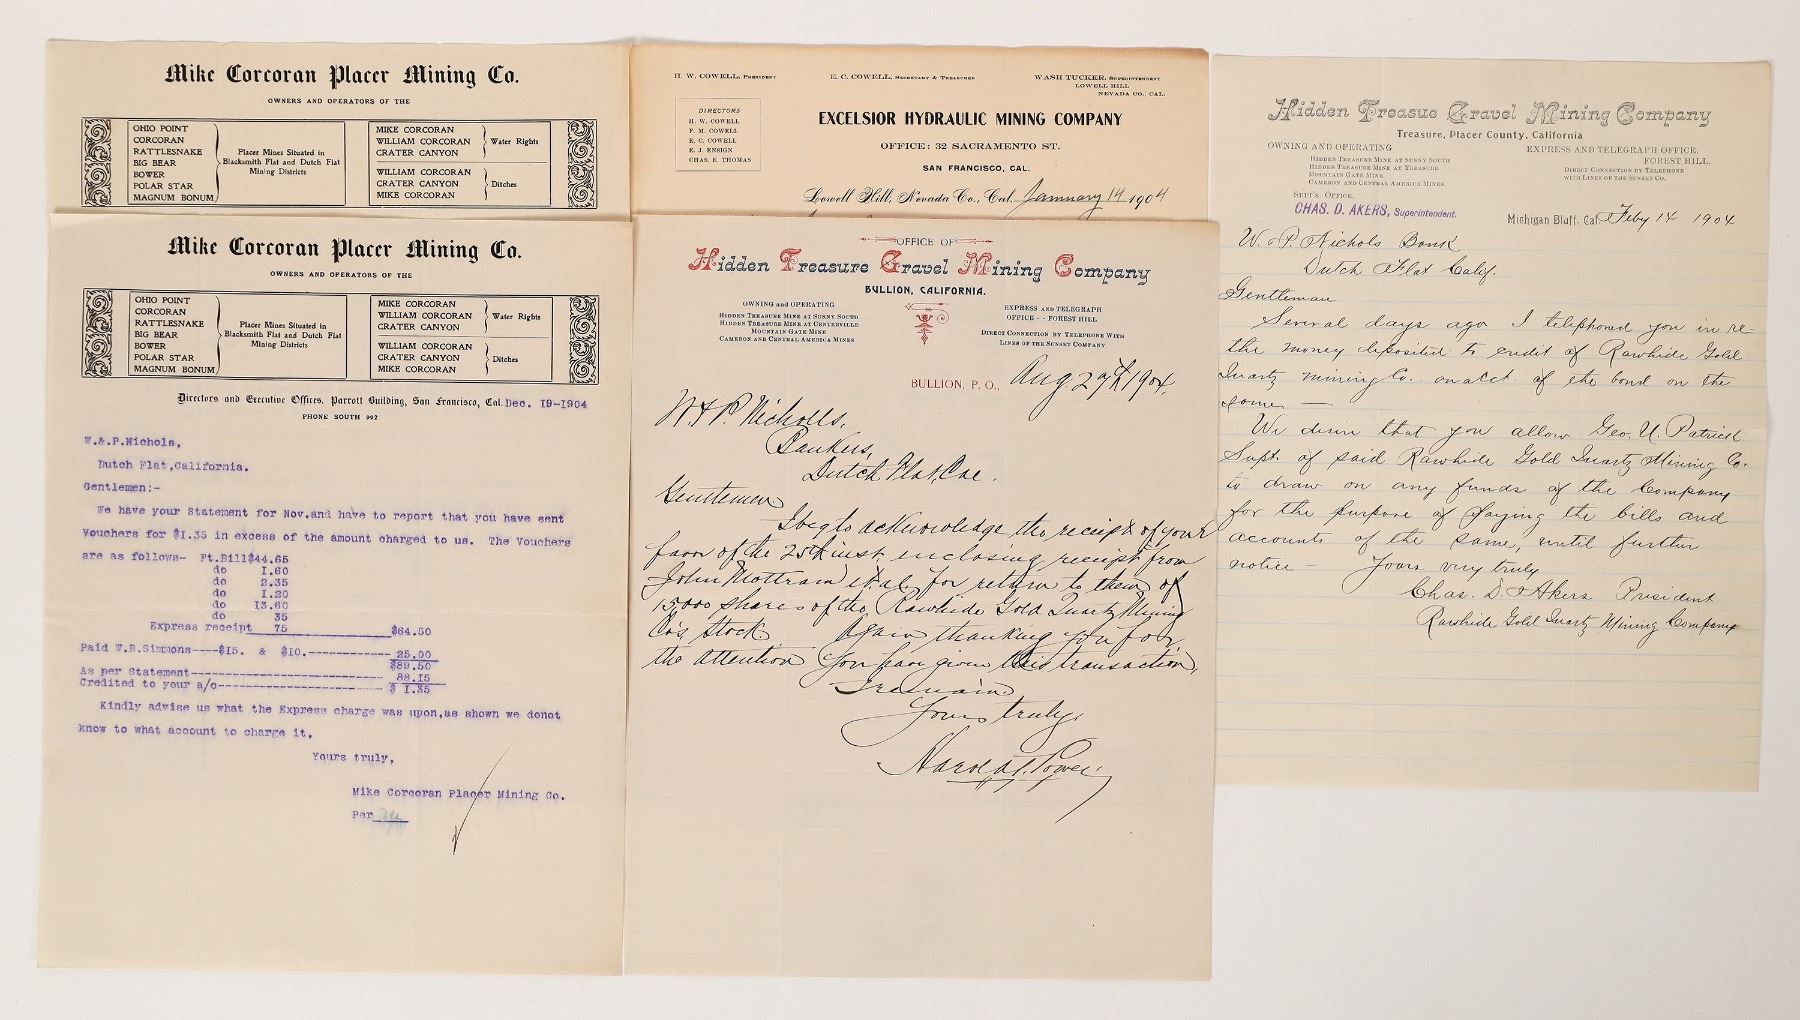 Mike Corcoran Placer Mining Co.
OWNERS AND OPERATORS OF THE
OHIO POINT
CORCORAN
RATTLESNAKE
BIG BEAR
BOWER
POLAR STAR
MAGNUM BONUM
Placer Mines Situated in
Blacksmith Flat and Dutch Flat
Mining Districts
MIKE CORCORAN
WILLIAM CORCORAN
CRATER CANYON
Water Rights
WILLIAM CORCORAN
CRATER CANYON
MIKE CORCORAN
Ditches
Mike Corcoran Placer Mining Co.
OWNERS AND OPERATORS OF THE
OHIO POINT
CORCORAN
RATTLESNAKE
BIG BEAR
BOWER
POLAR STAR
MAGNUM BONUM
Placer Mines Situated in
Blacksmith Flat and Dutch Flat
Mining Districts
MIKE CORCORAN
WILLIAM CORCORAN
CRATER CANYON
Water Rights
WILLIAM CORCORAN
CRATER CANYON
MIKE CORCORAN
Ditches
Directors and Executive Offices, Parrott Building, San Francisco, Cal. Dec. 19-1904
PHONE SOUTH 992
W.&.P.Nichols,
Dutch Flat,California.
Gentlemen:-
We have your Statement for Nov.and have to report that you have sent
Vouchers for $1.35 in excess of the amount charged to us. The Vouchers
are as follows- Ft.Bill$44.65
do 1.60
do 2.35
do 1.20
do 13.60
do 35
Express receipt 75 $64.50
Paid W.B.Simmons----$15. & $10.------------ 25.00
$89.50
As per Statement---------------------------- 88.15
Credited to your a/c------------------------ $ 1.35
Kindly advise us what the Express charge was upon,as shown we donot
know to what account to charge it.
Yours truly,
Mike Corcoran Placer Mining Co.
Per
H. W. COWELL, PRESIDENT
E. C. COWELL, SECRETARY & TREASURER
WASH TUCKER, SUPERINTENDENT
LOWELL HILL
NEVADA CO., CAL.
DIRECTORS
H. W. COWELL
F. M. COWELL
E. C. COWELL
E. J. ENSIGN
CHAS. E. THOMAS
EXCELSIOR HYDRAULIC MINING COMPANY
OFFICE: 32 SACRAMENTO ST.
SAN FRANCISCO, CAL.
Lowell Hill, Nevada Co., Cal. January 14 1904
OFFICE OF
Hidden Treasure Gravel Mining Company
BULLION, CALIFORNIA.
OWNING and OPERATING
HIDDEN TREASURE MINE AT SUNNY SOUTH
HIDDEN TREASURE MINE AT CENTERVILLE
MOUNTAIN GATE MINE
CAMERON AND CENTRAL AMERICA MINES
EXPRESS AND TELEGRAPH
OFFICE - - FOREST HILL
DIRECT CONNECTION BY TELEPHONE WITH
LINES OF THE SUNSET COMPANY
BULLION, P. O., Aug. 29th 1904.
W & P. Nicholls,
Bankers,
Dutch Flat, Cal.
Gentlemen
I beg to acknowledge the receipt of your
favor of the 25th inst. enclosing receipt from
John Mottram et.al. for return to them of
15,000 shares of the Rawhide Gold Quartz Mining
Co's. Stock. Again thanking you for
the attention you have given this transaction,
I remain
Yours truly,
Harold T. Power
Hidden Treasue Gravel Mining Company
Treasure, Placer County, California
OWNING AND OPERATING
HIDDEN TREASURE MINE AT SUNNY SOUTH
HIDDEN TREASURE MINE AT TREASURE
MOUNTAIN GATE MINE
CAMERON AND CENTRAL AMERICA MINES.
EXPRESS AND TELEGRAPH OFFICE:
FOREST HILL.
DIRECT CONNECTION BY TELEPHONE
WITH LINES OF THE SUNSET CO.
SUPT'S OFFICE,
CHAS. D. AKERS, Superintendent.
Michigan Bluff, Cal. Feby 14 1904
W. & P. Nichols Bank
Dutch Flat Calif.
Gentleman
Several days ago I telephoned you in re-
the money deposited to credit of Rawhide Gold
Quartz mining Co. on acct. of the bond on the
same —
We desire that you allow Geo. U. Patrick
Supt. of said Rawhide Gold Quartz Mining Co.
to draw on any funds of the Company
for the purpose of paying the bills and
accounts of the same, until further
notice — Yours very truly
Chas. D. Akers President
Rawhide Gold Quartz Mining Company